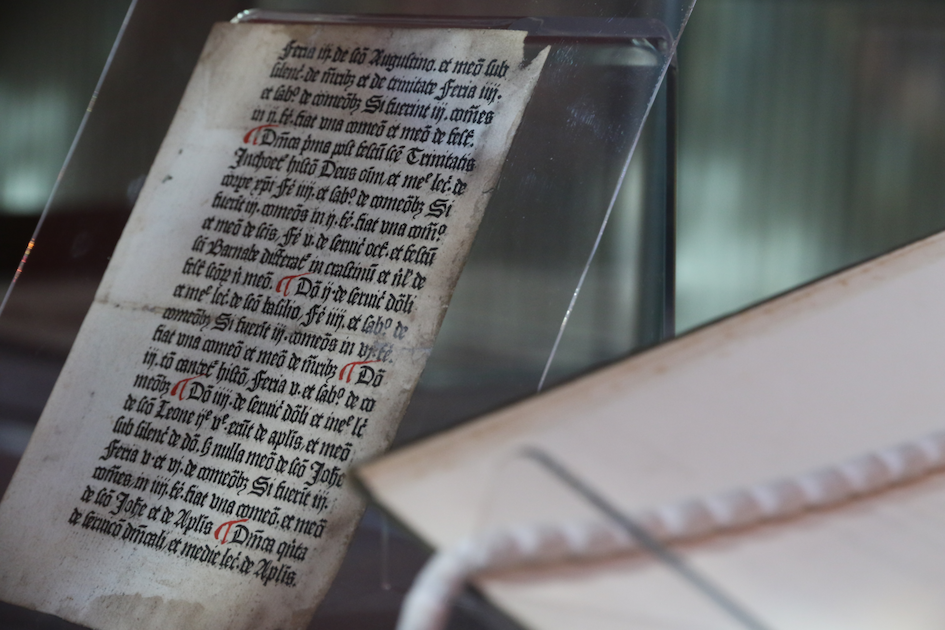 Feria iij. de scō Augustino. et meō sub
silenc̄. de m̄ribꝫ et de trinitate Feria iiij.
et sabº. de comeōbꝫ Si fuerint iij. com̄es
in ij. fē. fiat vna comeō et meō de fest.
¶ Dn̄ica p̄ma post festū scē Trinitatis
Inchoet̄ histō Deus oīm. et meͤ lec̄. de
corpe xp̄i Fē iiij. et sabº. de comeōbꝫ Si
fuerīt iij. comeōs in ij. fē. fiat vna com̄º.
et meō de scīs, Fē v. de seruic̄ oct̄. et festū
sc̄i Barnabe differat̄ in crastinū et nͨ de
fest̄ n̄ meō. ¶ Dō ij. de seruic̄ dōli
et meͤ lec̄. de scō Fē iiij. et sabº. de
comeōbꝫ Si fuerīt iij. comeōs in vj. fē.
fiat vna comeō et meō de m̄ribꝫ ¶ Dō
iij. tō cantet̄ histō, Feria v. et sabº. de co
meōbꝫ ¶ Dō iiij. de seruic̄ dōli et meͤ lc̄
de scō Leone erūt de aplīs, et meō
sub silenc̄ de dō. nulla meō de scō Joħe
Feria v. et vj. de comeōbꝫ Si fuerīt iij.
com̄es, in iiij. fē. fiat vna comeō. et meō
de scō Joħe et de Aplīs ¶ Dn̄ica qn̄ta
de seruicō dn̄icali, et medie lec̄. de Aplīs.